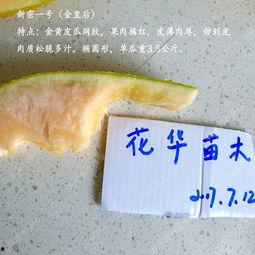 新密一号（金皇后）
特点：金黄皮瓜网纹，果肉橘红，皮薄肉厚，甜到皮
肉质松脆多汁。椭圆形，单瓜重3.5公斤。
花华苗木
2017.7.12